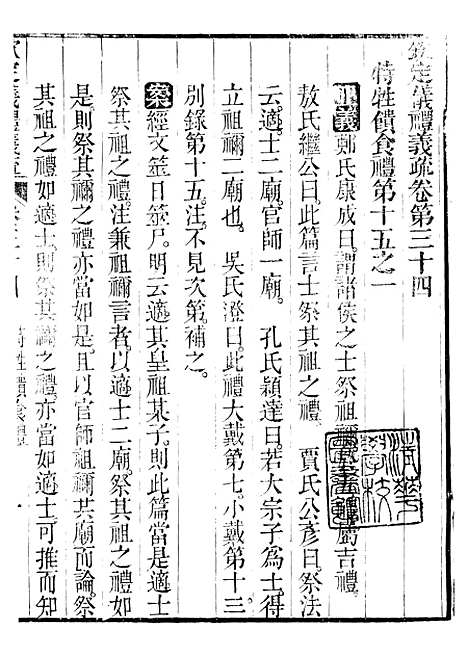 欽定儀禮義疏卷第三十四
特牲饋食禮第十五之一
正義鄭氏康成曰謂諸侯之士祭祖禰
吉禮
敖氏繼公曰此篇言士祭其祖之禮 賈氏公彥曰祭法
云適士二廟官師一廟 孔氏穎達曰若大宗子為士得
立祖禰二廟也 吳氏澄曰此禮大戴第七小戴第十三
別錄第十五注不見次第補之
案經文筮日筮尸明云適其皇祖某子則此篇當是適士
祭其祖之禮注兼祖禰言者以適士二廟祭其祖之禮如
是則祭其禰之禮亦當如是且以官師祖禰共廟而論祭
其祖之禮如適士則祭其禰之禮亦當如適士可推而知
特牲饋食禮
清華學校